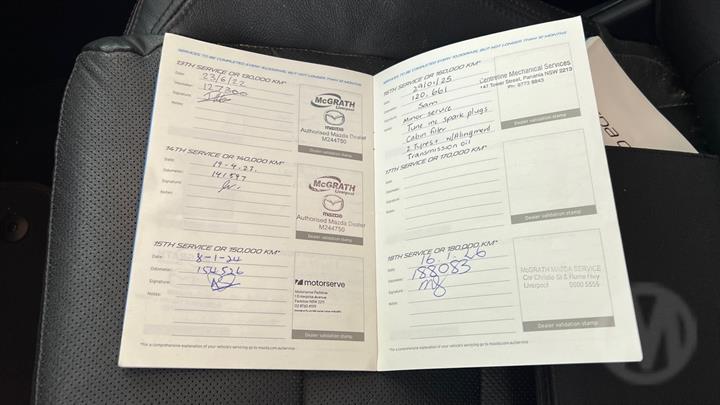 SERVICES TO BE COMPLETED EVERY 10,000KMS, BUT NOT LONGER THAN 12 MONTHS
13TH SERVICE OR 130,000 KM*
Date: 23/6/22
Odometer: 127300
Signature:
Notes:
McGRATH
Liverpool
mazda
Authorised Mazda Dealer
M244750
Dealer validation stamp
14TH SERVICE OR 140,000 KM*
Date: 19-4.23.
Odometer: 141597
Signature:
Notes:
McGRATH
Liverpool
mazda
Authorised Mazda Dealer
M244750
Dealer validation stamp
15TH SERVICE OR 150,000 KM*
Date: 8-1-24
Odometer: 154526
Signature:
Notes:
motorserve
Dealer validation stamp
*For a comprehensive explanation of your vehicle's servicing go to mazda.com.au/service
SERVICES TO BE COMPLETED EVERY 10,000KMS, BUT NOT LONGER THAN 12 MONTHS
16TH SERVICE OR 160,000 KM*
Date: 29/01/25
Odometer: 120.661
Signature: Sam
Notes: Minor service
Tune inc spark plugs
Cabin filter
2 Tyres + w/Alingment
Transmission oil
Centreline Mechanical Services
147 Tower Street, Panania NSW 2213
Ph: 9773 8843
Dealer validation stamp
17TH SERVICE OR 170,000 KM*
Date:
Odometer:
Signature:
Notes:
Dealer validation stamp
18TH SERVICE OR 180,000 KM*
Date: 16.1.26
Odometer: 188083
Signature:
Notes:
McGRATH MAZDA SERVICE
Cnr Christie St & Hume Hwy
Liverpool
Dealer validation stamp
*For a comprehensive explanation of your vehicle's servicing go to mazda.com.au/service